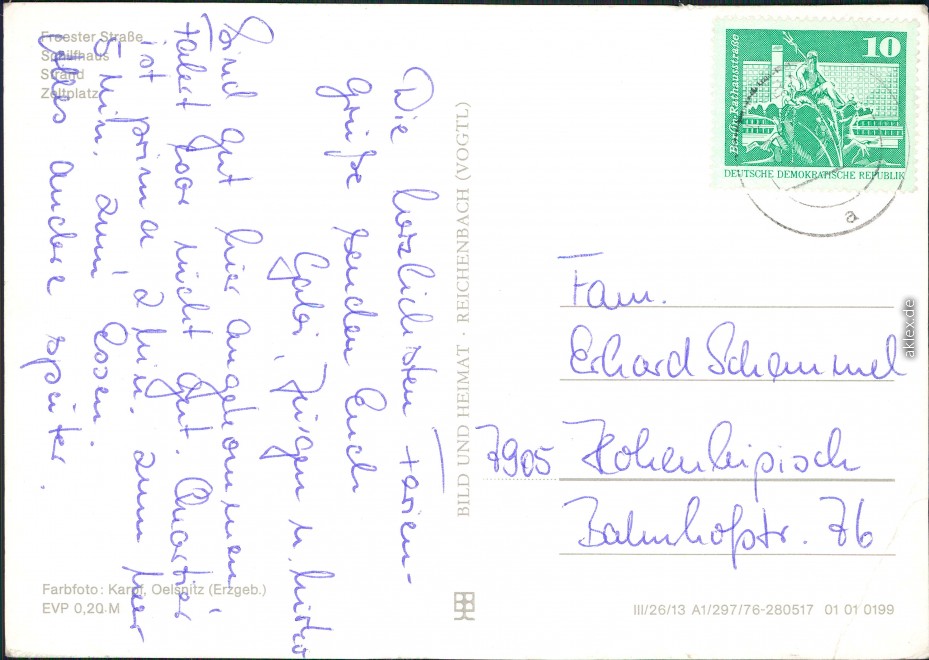 Freester Straße
Schilfhaus
Strand
Zeltplatz
Die herzlichsten Ferien-
grüße senden Euch
Gabi, Jürgen u. Mirko
Sind gut hier angekommen
Fahrt war nicht gut. Quartier
ist prima 2 Min. zum Meer
5 Min. zum Essen.
Alles andere später.
BILD UND HEIMAT · REICHENBACH (VOGTL)
Berlin, Rathausstraße
10
DEUTSCHE DEMOKRATISCHE REPUBLIK
a
Fam.
Erhard Schemmel
7905 Hohenleipisch
Bahnhofstr. 76
aklex.de
Farbfoto: Karpf, Oelsnitz (Erzgeb.)
EVP 0,20 M
III/26/13 A1/297/76-280517 01 01 0199